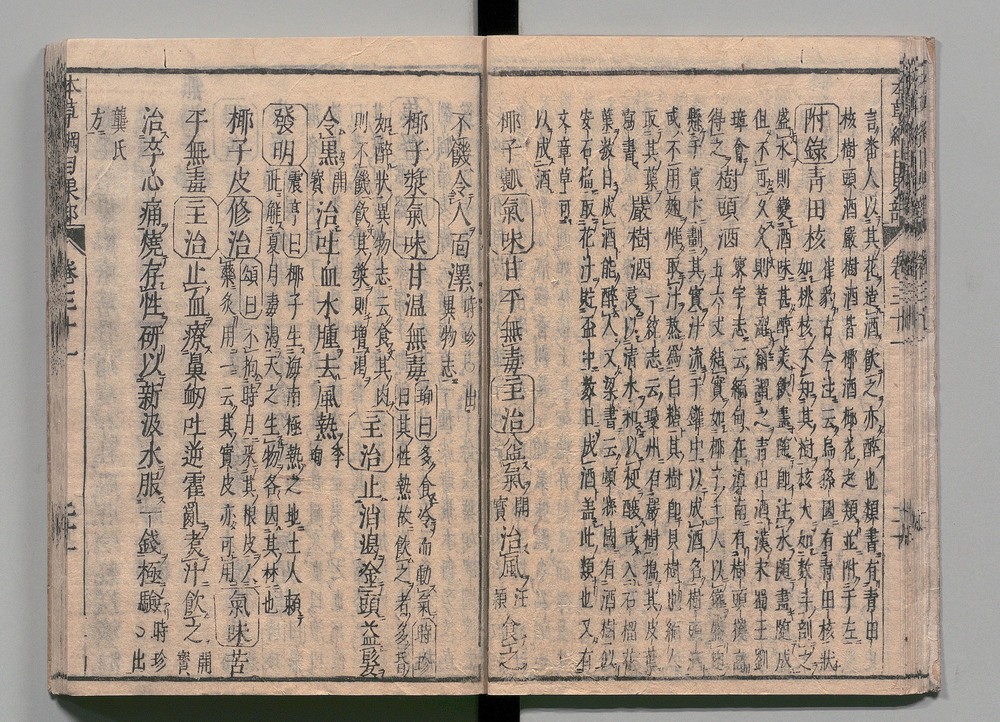 言番人以其花造酒飲之亦醉也類書有青田
核樹頭酒嚴樹酒昔椰酒椰花之類並附于左
附錄青田核 崔豹古今注云烏孫國有青田核狀
如桃核不知其樹核大如數斗剖之
盛水則變酒味甚醇美飲盡隨即注水隨盡隨成
但不可久久則苦澀爾謂之青田酒漢末蜀王劉
璋會得之樹頭酒 寰宇志云緬甸在滇南有樹頭㯶高
五六丈結實如椰子土人以罐盛麴
懸于實下劃其實汁流于罐中以成酒名樹頭酒
或不用麴惟取汁熬爲白糖其樹即貝樹也緬人
取其葉寫書嚴樹酒 一統志云瓊州有嚴樹搗其皮葉
浸以清水和以粳釀或入石榴花
葉數日成酒能醉人又梁書云頓遜國有酒樹似
安石榴取花汁貯盃中數日成酒蓋此類也又有
文章草可
以成酒
椰子瓤氣味甘平無毒主治益氣開寶治風汪頴食之
不饑令人面澤時珍出異物志
椰子漿氣味甘溫無毒珣曰多食冷而動氣時珍曰其性熱故飲之者多昏
如醉狀異物志云食其肉
則不饑飲其漿則增渴主治止消渴塗頭益髮
令黑開寶治吐血水腫去風熱李珣
發明震亨曰椰子生海南極熱之地土人賴
此解夏月毒渴天之生物各因其材也
椰子皮修治頌曰不拘時月采其根皮入
藥炙用一云其實皮亦可用氣味苦
平無毒主治止血療鼻衂吐逆霍亂煮汁飲之開寶
治卒心痛燒存性研以新汲水服一錢極驗時珍出
龔氏
方
本草綱目果部 卷三十一